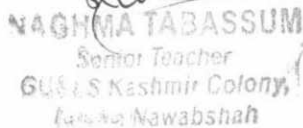 NAGHMA TABASSUM
Senior Teacher
Kashmir Colony,
Nawabshah